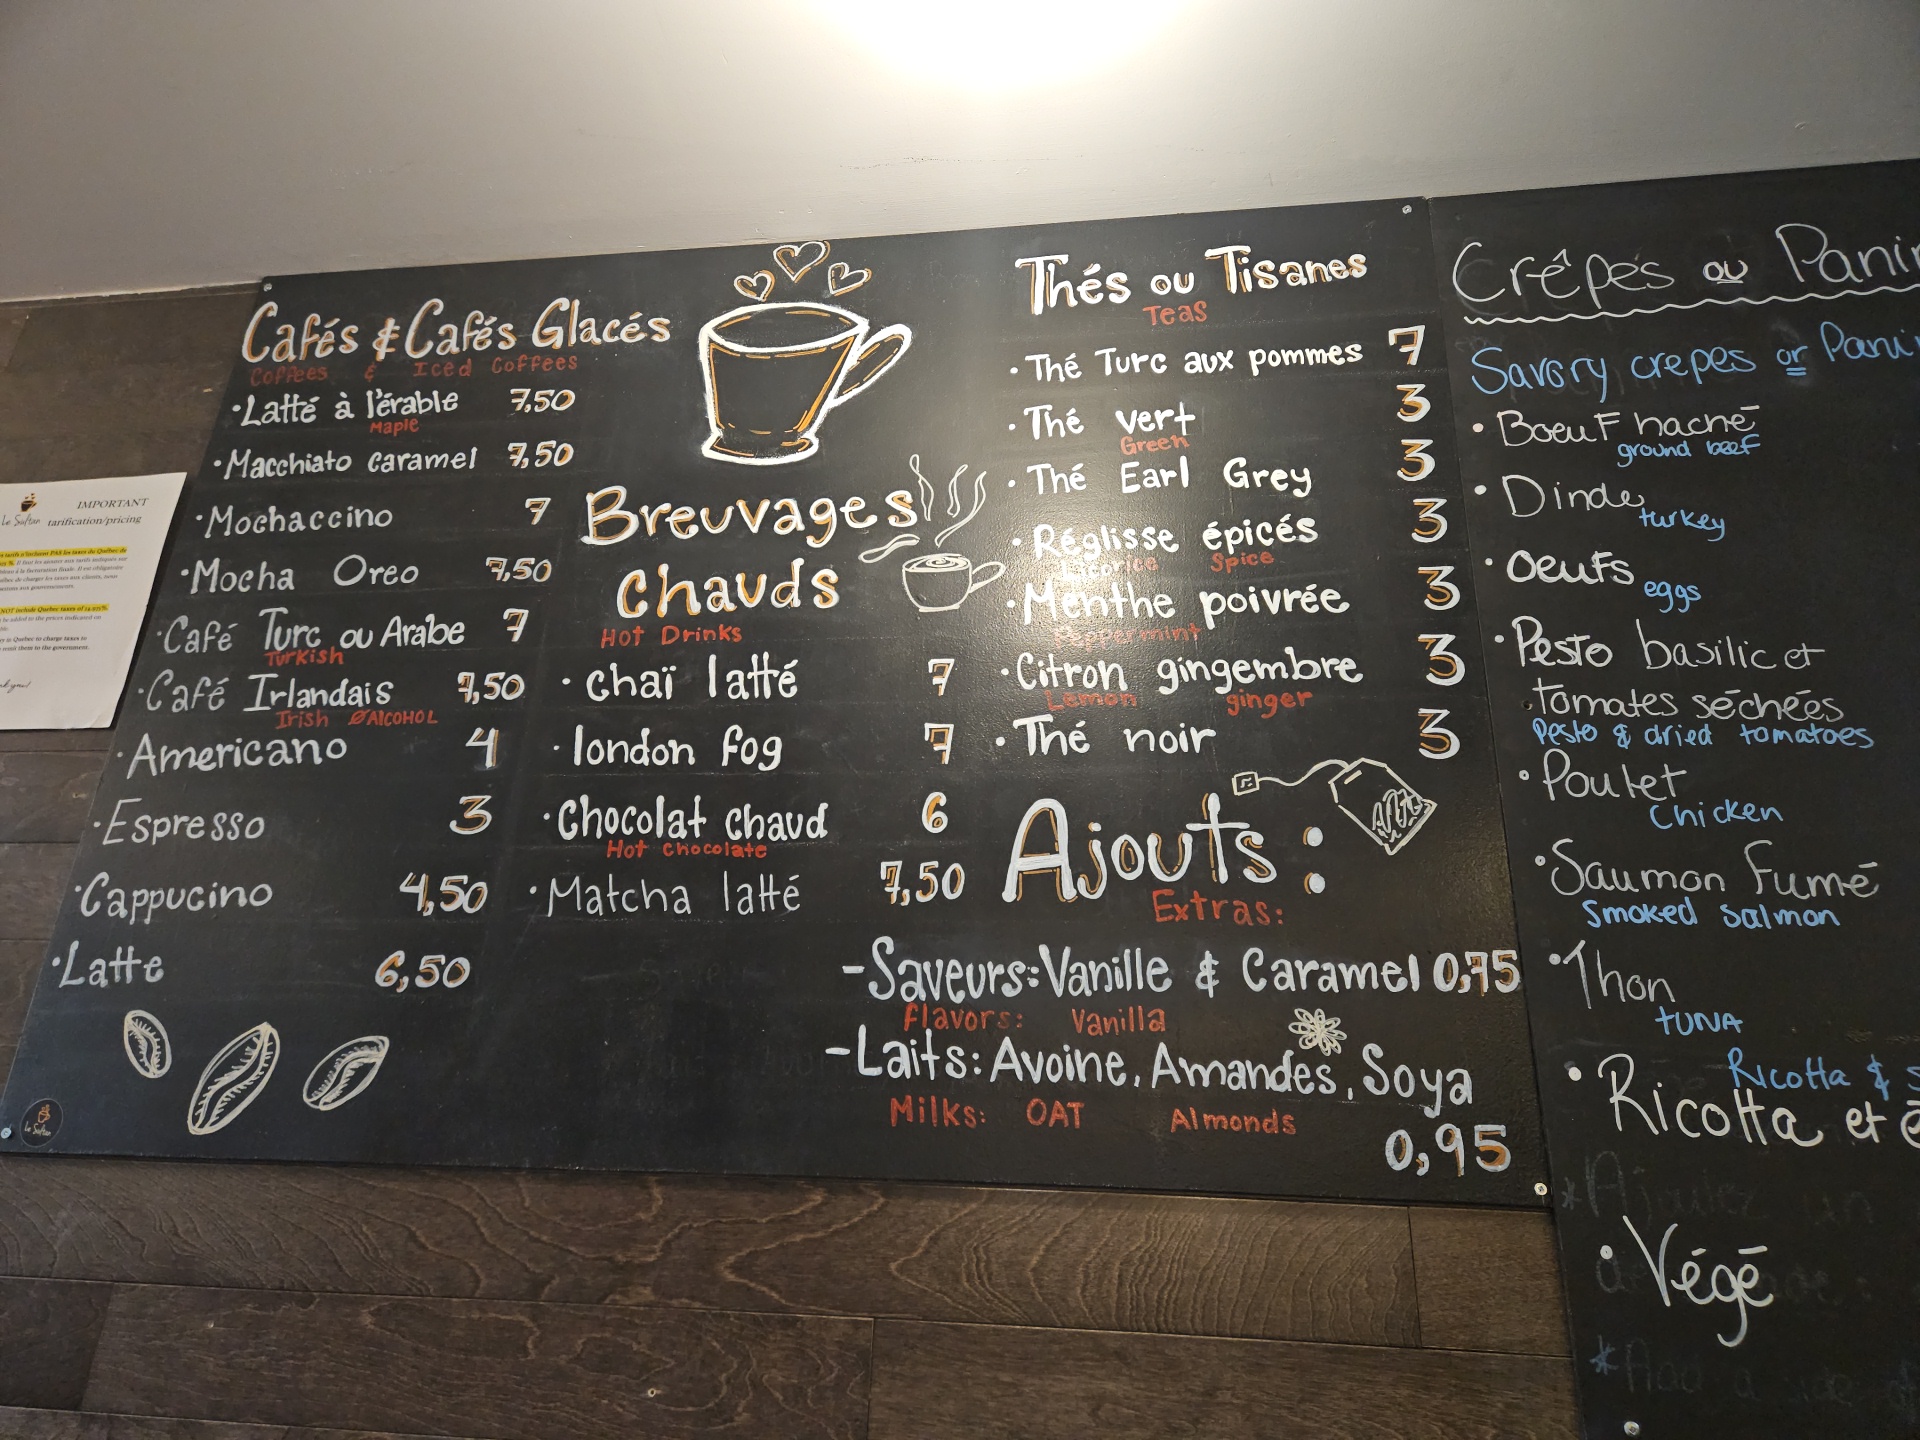 IMPORTANT
Le Sultan tarification/pricing
Cafés & Cafés Glacés
Coffees & Iced Coffees
• Latté à l'érable 7,50
Maple
• Macchiato caramel 7,50
• Mochaccino 7
• Mocha Oreo 7,50
• Café Turc ou Arabe 7
Turkish
• Café Irlandais 7,50
Irish Ø Alcohol
• Americano 4
• Espresso 3
• Cappucino 4,50
• Latte 6,50
Le Sultan
Breuvages
chauds
Hot Drinks
• chaï latté 7
• london fog 7
• Chocolat chaud 6
Hot chocolate
• Matcha latté 7,50
Thés ou Tisanes
Teas
• Thé Turc aux pommes 7
• Thé vert 3
Green
• Thé Earl Grey 3
• Réglisse épicés 3
Licorice Spice
• Menthe poivrée 3
Peppermint
• Citron gingembre 3
Lemon ginger
• Thé noir 3
Ajouts :
Extras:
- Saveurs: Vanille & Caramel 0,75
flavors: Vanilla
- Laits: Avoine, Amandes, Soya
Milks: OAT Almonds
0,95
Crêpes ou
Savory crepes or
• Boeuf haché
ground beef
• Dinde
turkey
• oeufs
eggs
• Pesto basilic et
tomates séchées
Pesto & dried tomatoes
• Poulet
Chicken
• Saumon fumé
Smoked salmon
• Thon
TUNA
Ricotta &
• Ricotta et
• Végé